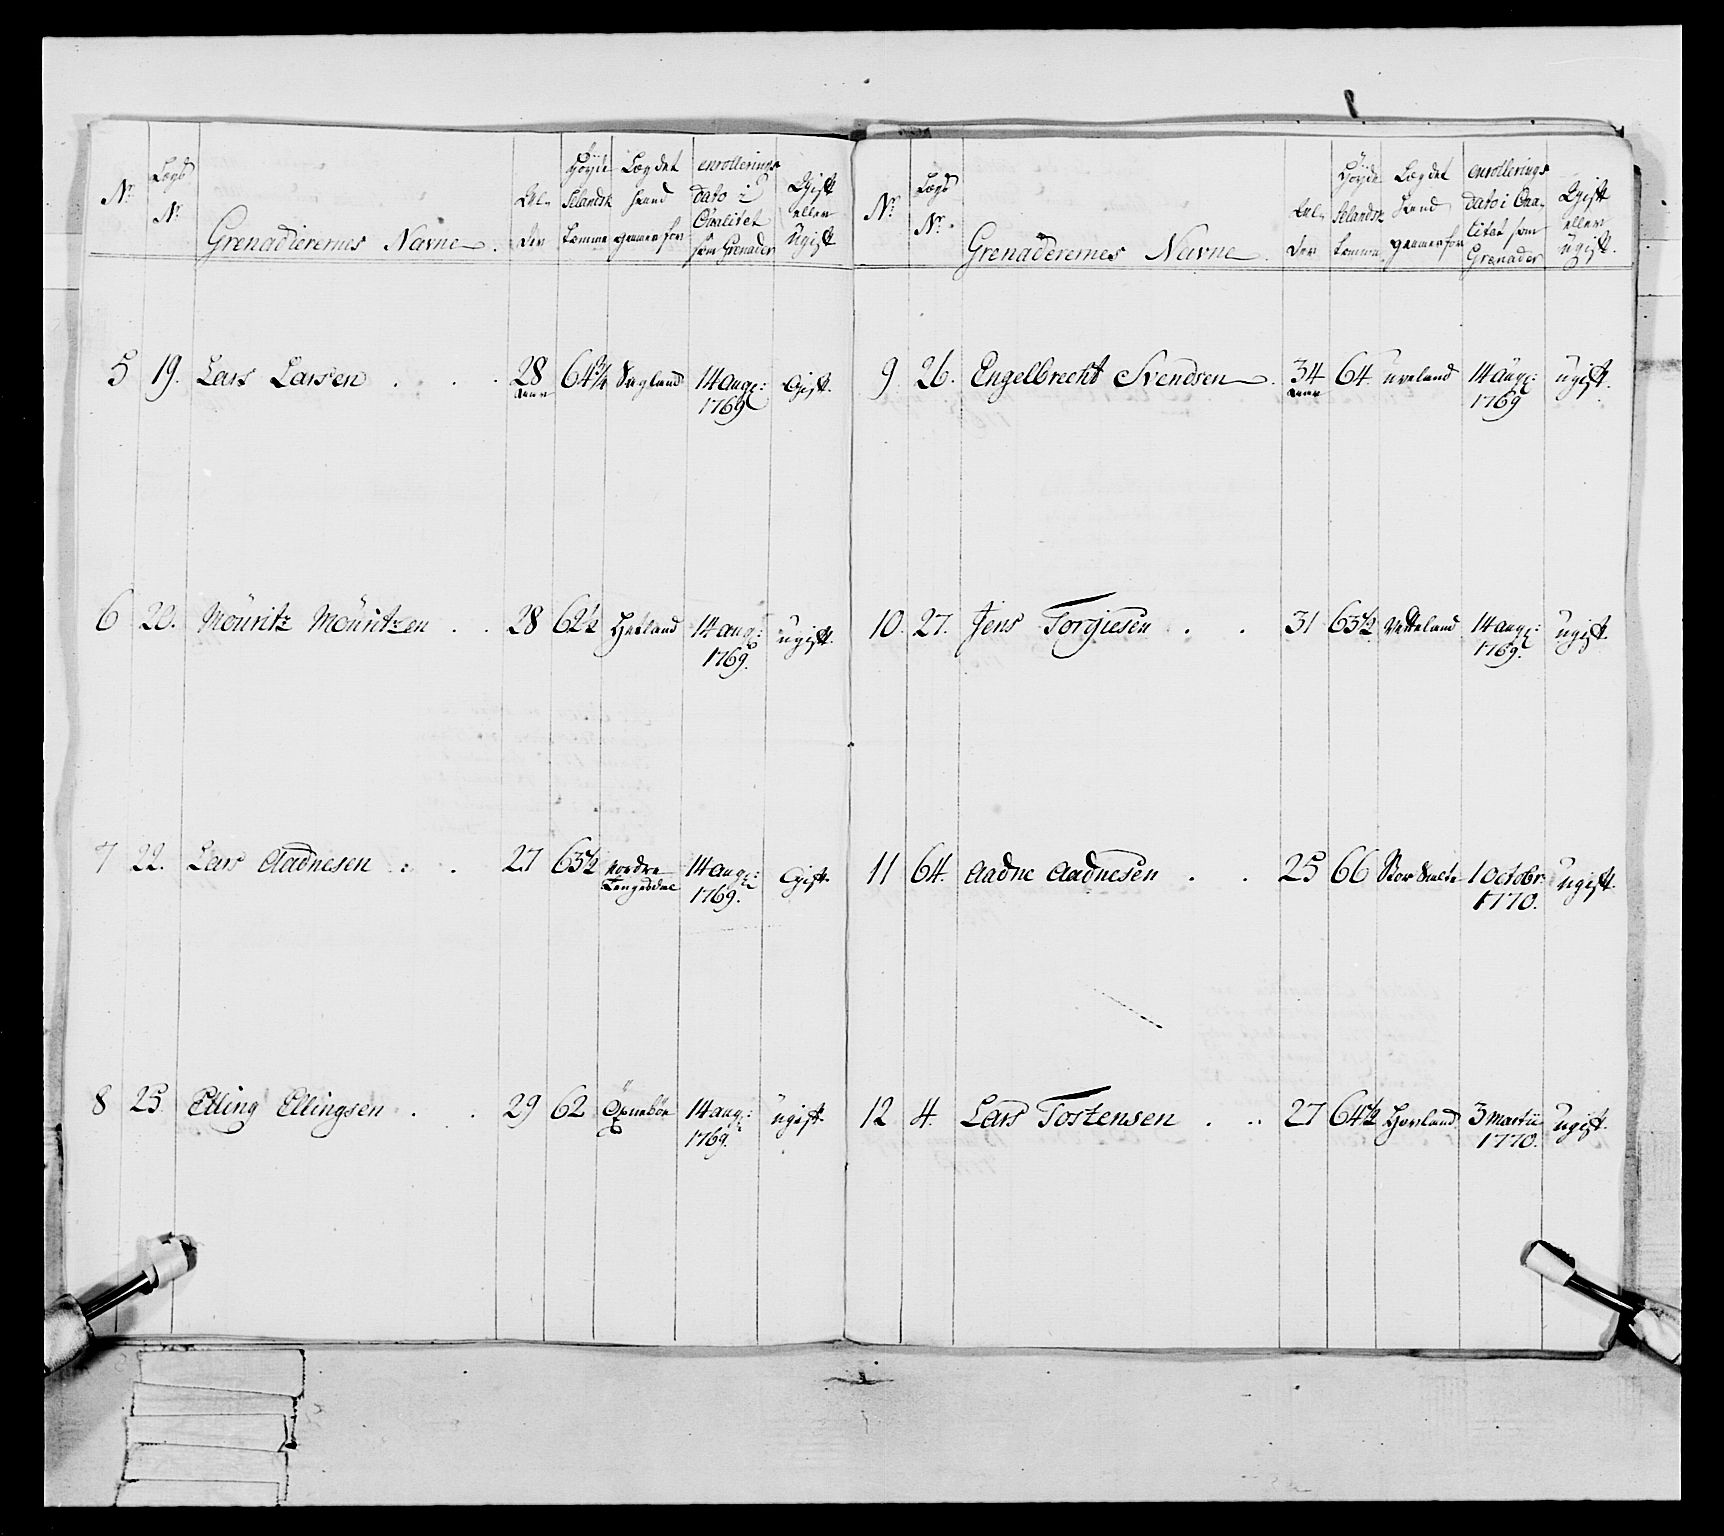 N.r Lægs N.r Grenadierernes Navne. Al- der Höyde Selandsk Tomme Lægdet hand gaaer for enrollerings dato i Qvalitet som Grenader Gift eller Ugift
5 19. Lars Larsen . . . 28 aar 64¾ Sagland 14 aug: 1769 Gift.
6 20. Mouritz Mouritzen . . 28 62½ Hetland 14 aug: 1769. ugift.
7 22. Lars Aadnesen : . 27 63½ nordre Tengesdal 14 aug: 1769. Gift.
8 25. Elling Ellingsen . . 29 62 14 aug: 1769. ugift.
N.r Lægs N.r Grenaderernes Navne. Al- der Höyde Selandsk Tomme Lægdet hand gaaer for enrollerings dato i Qva- litet som Grenader Gift eller ugift.
9 26. Engelbrecht Svendsen . 34 aar 64. ueland 14 aug: 1769 ugift.
10. 27. Jens Torgiesen . . 31 63½ Vetteland 14 aug: 1769. ugift.
11 64. Aadne Aadnesen . . 25 66 Stor 1 octobr: 1770. ugift.
12 4. Lars Tostensen . .. 27 64½ Hovland 3 martii 1770. ugift.